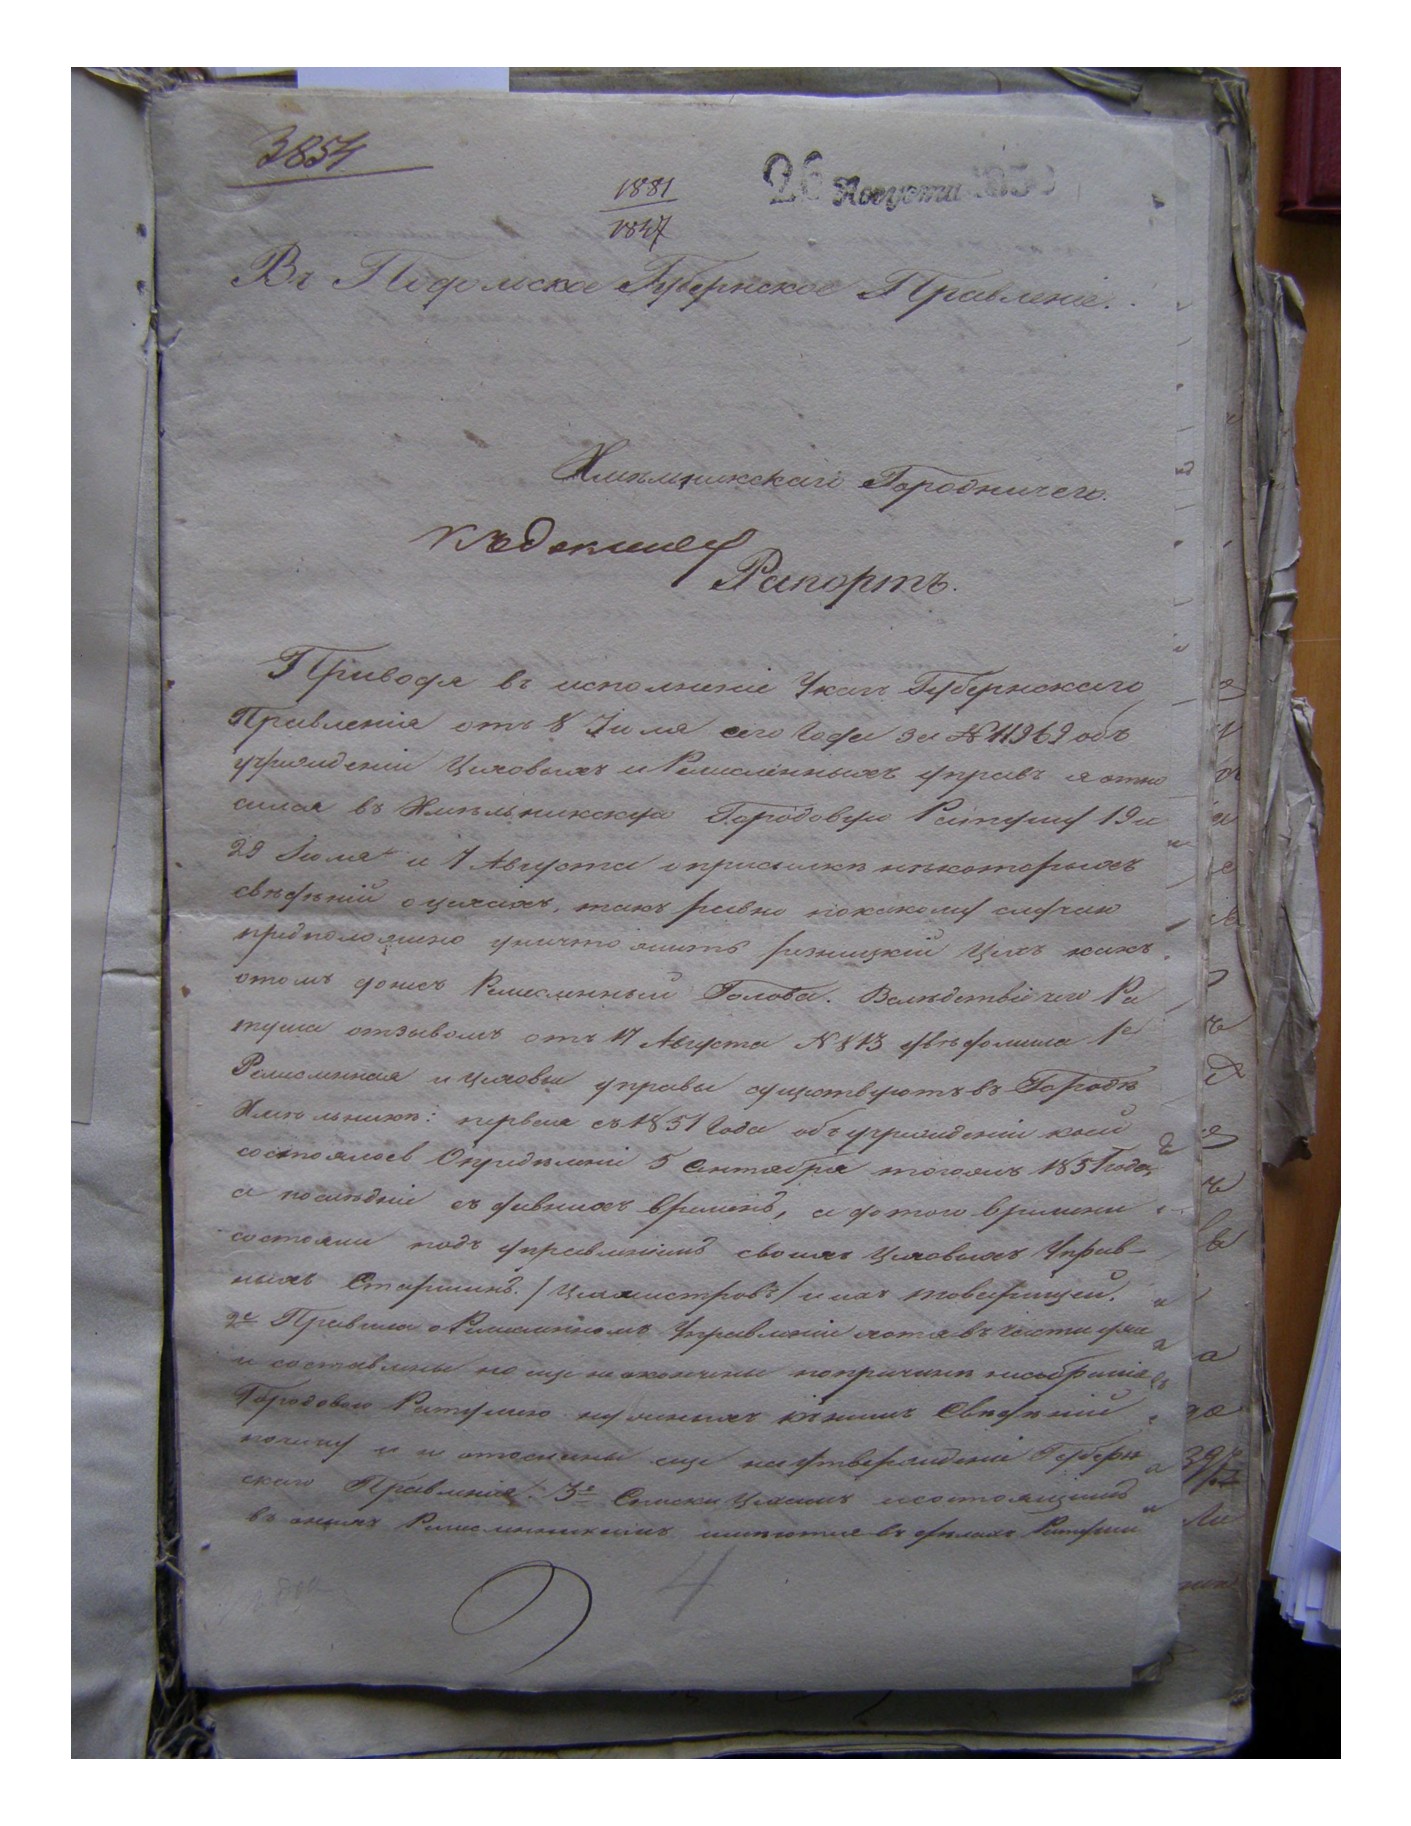 3854
1881
1847
26 Августа 185
Въ Подольское Губернское Правленіе.
Хмѣльникскаго Городничего.
къ докладу
Рапортъ.
Приводя въ исполненіе Указъ Губернскаго
Правленія отъ 8 Іюля сего Года за № 11969 объ
учрежденіи Цеховыхъ и Ремесленныхъ управъ я отно
сился въ Хмѣльникскую Городовую Ратушу 19 и
29 Іюля и 7 Августа о присылкѣ нѣкоторыхъ
свѣдѣній о цехахъ, такъ равно по какому случаю
предположено уничтожить рѣзницкій Цехъ какъ
о томъ донесъ Ремесленный Голова. Вслѣдствіе чего Ра
туша отзывомъ отъ 17 Августа № 813 увѣдомила 1е
Ремесленная и Цеховые управы существуютъ въ Городѣ
Хмѣльникѣ: первая съ 1851 Года объ учрежденіи коей
состоялось Опредѣленіе 5 Сентября того жъ 1851 года,
а послѣдніе съ давнихъ временъ, а до того времени
состояли подъ управленіемъ своихъ Цеховыхъ Управ-
ныхъ Старшинъ /Цехмистровъ/ и ихъ товарищей.
2е Правила о Ремесленномъ Управленіи хотя въ части
и составлены но еще не окончены по причинѣ несобранія
Городовою Ратушею нужныхъ къ нимъ Свѣдѣній
почему и не отосланы еще на утвержденіе Губерн
скаго Правленія. 3е Списки Цехамъ и состоящимъ
въ оныхъ Ремесленникамъ имѣются въ дѣлахъ Ратуши
4